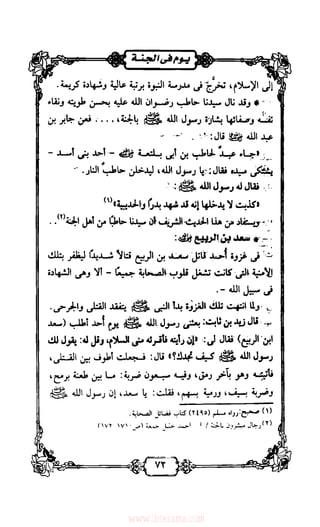 يوم في الجنة
إلى الإسلام، تخرَّج في مدرسة النبوة برتبة عالية وشهادة كريمة.
* وقد نال سيدنا حاطب رضوان الله عليه بحسن طويته ونقاء
نفسه وصفائها بشارة رسول الله ﷺ بالجنة، .... فعن جابر بن
عبد الله ﷺ قال:
جاء عبدٌ لحاطب بن أبي بلتعة ﷺ - أحد بني أسد -
يشتكي سيده فقال: يا رسول الله، ليدخلن حاطبٌ النار.
فقال له رسول الله ﷺ:
«كذبت لا يدخلها إنه قد شهد بدراً والحديبية»(١)
ويستفاد من هذا الحديث الشريف أن سيدنا حاطبًا من أهل الجنة(٢)..
* سعد بن الربيع ﷺ:
في غزوة أحد قاتل سعد بن الربيع قتالاً شديداً ليظفر بتلك
الأمنية التي كانت تشغل قلوب الصحابة جميعًا - ألا وهي الشهادة
في سبيل الله -.
ولما انتهت تلك الغزوة بدأ النبي ﷺ يتفقد القتلى والجرحى.
قال زيد بن ثابت: بعثني رسول الله ﷺ يوم أُحد أطلب (سعد
ابن الربيع) فقال لي: «إن رأيته فأقرئه مني السلام، وقل له: يقول لك
رسول الله ﷺ كيف تجدك؟» قال: فجعلت أطوف بين القتلى،
فأتيته وهو بآخر رمق، وفيه سبعون ضربة: ما بين طعنة برمح،
وضربة بسيف، ورمية بسهم، فقلت: يا سعد، إن رسول الله ﷺ
(١) صحيح: رواه مسلم (٢٤٩٥) كتاب فضائل الصحابة.
(٢) رجال مبشرون بالجنة / أحمد خليل جمعة (ص ١٧١، ١٧٢)
٧٢